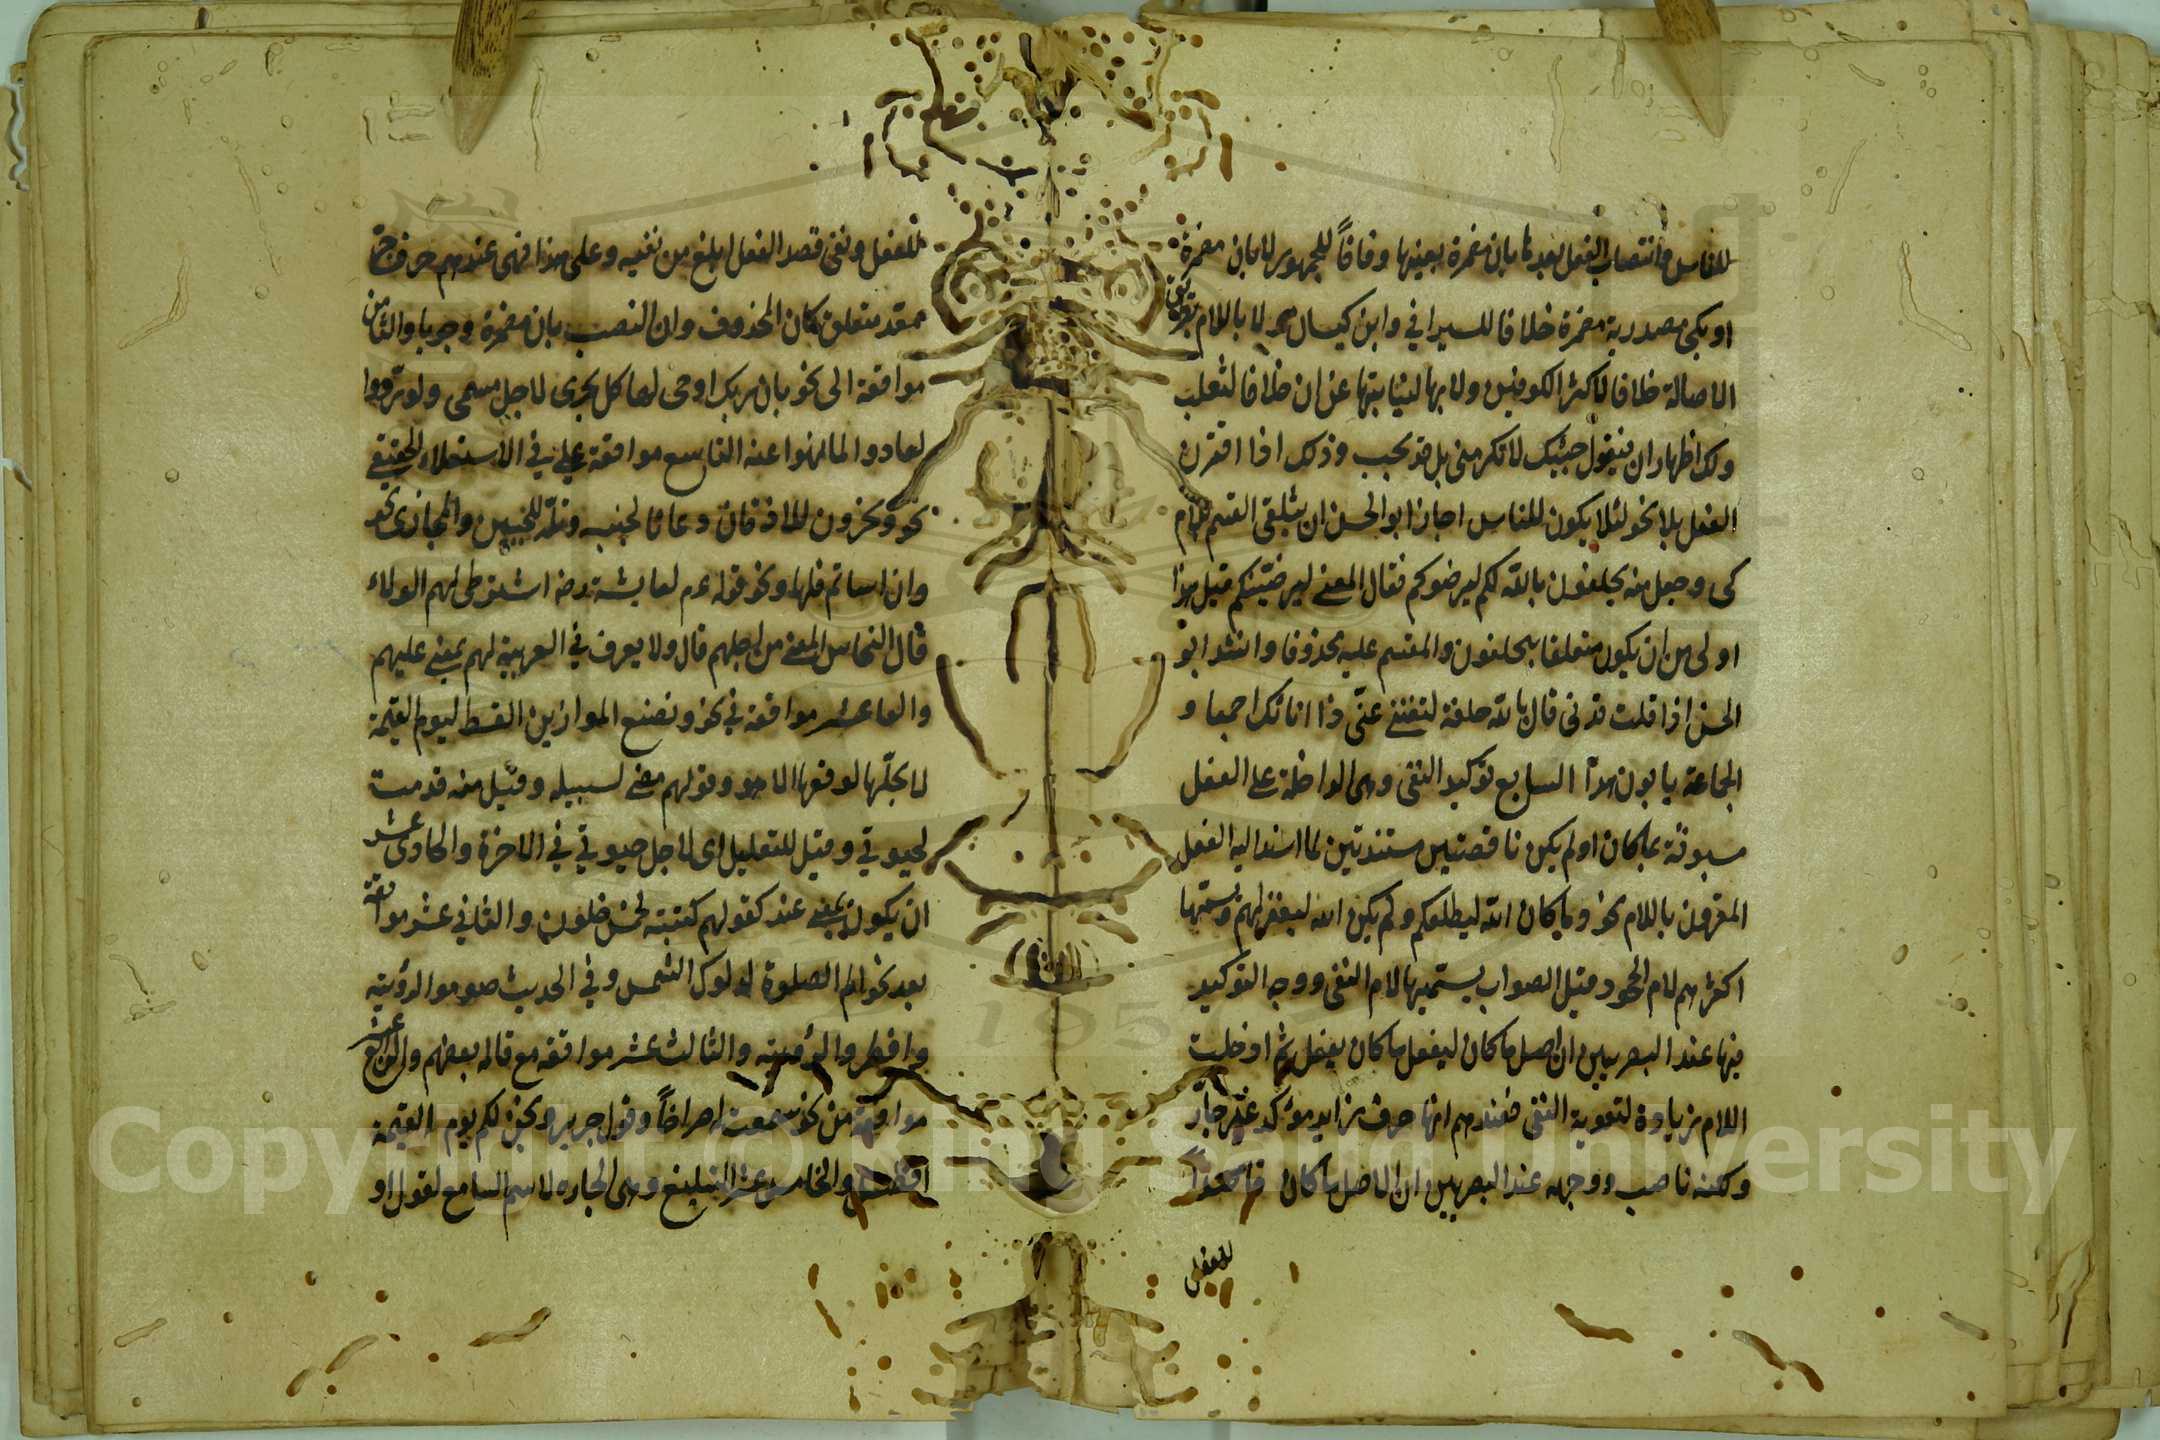 للناس وانتصاب الفعل بعدها بان مضمرة بعينها وفاقاً للجمهور لا بان مضمرة
او بكى مصدرية مضمرة خلافا للسيرافي وابن كيسان ولا باللام بطريق
الاصالة خلافا لاكثر الكوفيين ولا بها لنيابتها عن ان خلافا لثعلب
ولك اظهار ان فيقول جئتك لان تكرمنى بل قد يجب وذلك اذا اقترن
الفعل بلا نحو لئلا يكون للناس اجاز ابو الحسن ان يتلقى القسم بلام
كى وجعل منه يحلفون بالله لكم ليرضوكم فقال المعنى ليرضينكم قيل هذا
اولى من ان يكون متعلقا بيحلفون والمقسم عليه محذوفا وانشد ابو
الحسن اذا قلت قدنى قال بالله حلفة لتغنى عنّى ذا انائك اجمعا و
الجماعة يابون هذا السابع توكيد النفى وهى الداخلة على الفعل
مسبوقة بما كان او لم يكن ناقصتين مسندتين لما اسند اليه الفعل
المقرون باللام نحو وما كان الله ليطلعكم ولم يكن الله ليغفر لهم ويسميها
اكثرهم لام الجحود قيل الصواب يسميها لام النفى ووجه التوكيد
فيها عند البصريين ان اصل ما كان ليفعل ما كان يفعل ثم ادخلت
اللام زيادة لتقوية النفى فعندهم انها حرف زايد مؤكد غير جار
ولكنه ناصب ووجهه عند البصريين ان الاصل ما كان قاصدا
للفعل
للفعل ونفى قصد الفعل ابلغ من نفيه وعلى هذا فهى عندهم حرف جر
معد متعلق بكان المحذوف وان النصب بان مضمرة وجوبا والثامن
موافقة الى نحو بان ربك اوحى لها كل يجرى لاجل مسمى ولو ردوا
لعادوا لما نهوا عنه التاسع موافقة على في الاستعلاء الحقيقى
نحو ويخرون للاذقان دعانا لجنبه وتله للجبين والمجازى نحو
وان اساتم فلها ونحو قوله عم لعايشة رضه اشترطى لهم الولاء
قال النحاس المعنى من اجلهم قال ولا يعرف في العربية لهم بمعنى عليهم
والعاشر موافقة في نحو ونضع الموازين القسط ليوم القيمة
لا يجلّيها لوقتها الا هو وقولهم مضى لسبيله وقيل منه قدمت
لحيوتي وقيل للتعليل اى لاجل حيوتي في الاخرة والحادى عشر
ان يكون بمعنى عند كقولهم كتبته لخمس خلون والثاني عشر موافقة
بعد نحو اقم الصلوة لدلوك الشمس وفي الحديث صوموا لرؤيته
وافطروا لرؤيته والثالث عشر موافقة مع قاله بعضهم والرابع عشر
موافقة من نحو سمعت له صراخاً وقول جرير ونحن لكم يوم القيمة
افضل والخامس عشر التبليغ وهى الجارة لاسم السامع لقول او
Copyright © King Saud University
1957